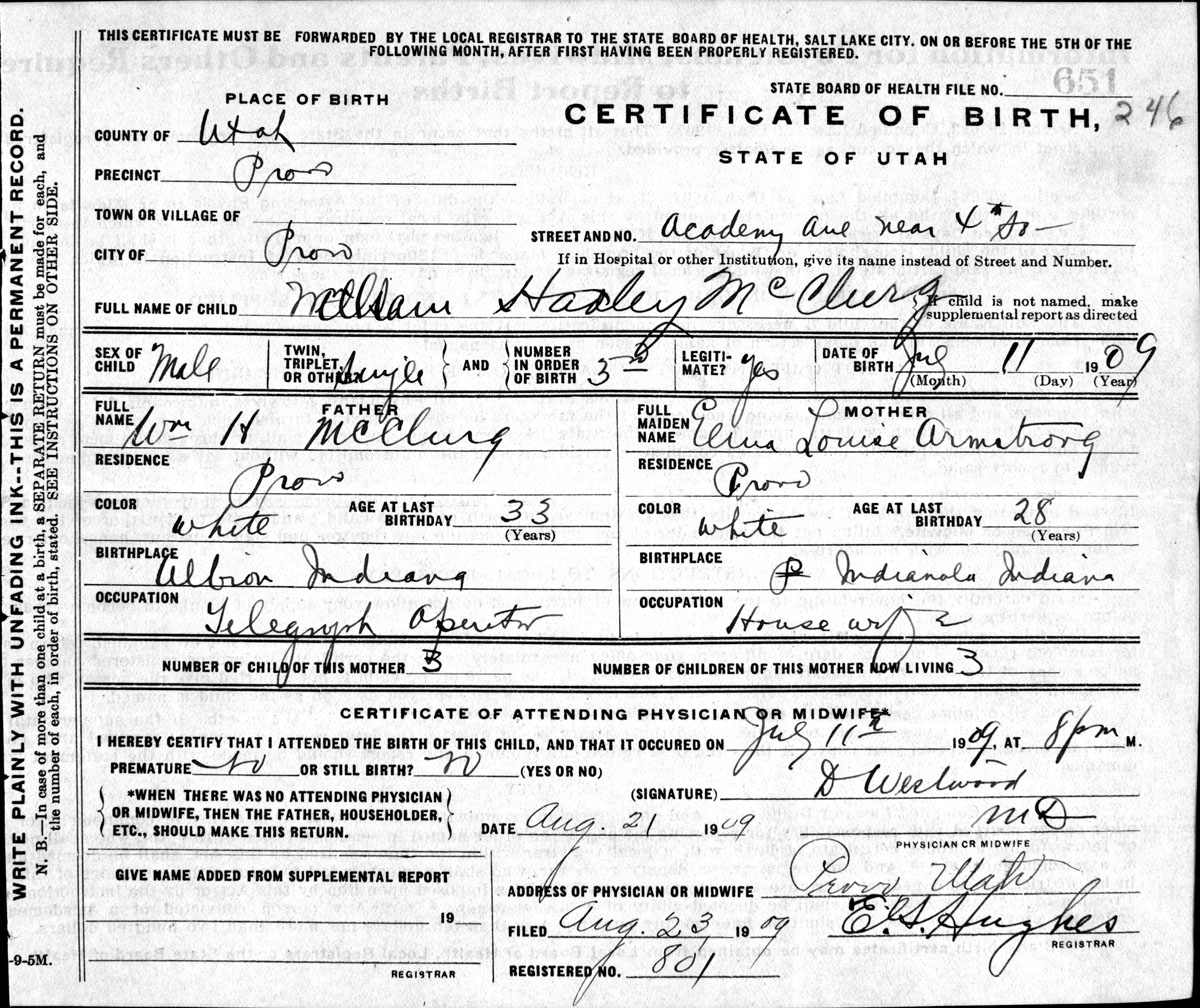 THIS CERTIFICATE MUST BE FORWARDED BY THE LOCAL REGISTRAR TO THE STATE BOARD OF HEALTH, SALT LAKE CITY. ON OR BEFORE THE 5TH OF THE
FOLLOWING MONTH, AFTER FIRST HAVING BEEN PROPERLY REGISTERED.
STATE BOARD OF HEALTH FILE NO. 651
PLACE OF BIRTH
CERTIFICATE OF BIRTH, 246
STATE OF UTAH
COUNTY OF Utah
PRECINCT Provo
TOWN OR VILLAGE OF
STREET AND NO. Academy Ave near 4th So-
CITY OF Provo
If in Hospital or other Institution, give its name instead of Street and Number.
FULL NAME OF CHILD William Hadley McClurg
If child is not named, make
supplemental report as directed
SEX OF CHILD Male
TWIN, TRIPLET, OR OTHER Single
AND
NUMBER IN ORDER OF BIRTH 3rd
LEGITIMATE? Yes
DATE OF BIRTH July 11 1909
(Month) (Day) (Year)
FATHER
FULL NAME Wm H McClurg
RESIDENCE Provo
COLOR White
AGE AT LAST BIRTHDAY 33
(Years)
BIRTHPLACE Albion Indiana
OCCUPATION Telegraph Operator
MOTHER
FULL MAIDEN NAME Louise Armstrong
RESIDENCE Provo
COLOR White
AGE AT LAST BIRTHDAY 28
(Years)
BIRTHPLACE Indianola Indiana
OCCUPATION House wife
NUMBER OF CHILD OF THIS MOTHER 3
NUMBER OF CHILDREN OF THIS MOTHER NOW LIVING 3
CERTIFICATE OF ATTENDING PHYSICIAN OR MIDWIFE*
I HEREBY CERTIFY THAT I ATTENDED THE BIRTH OF THIS CHILD, AND THAT IT OCCURED ON July 11th 1909, AT. 8pm M.
PREMATURE No OR STILL BIRTH? No (YES OR NO)
*WHEN THERE WAS NO ATTENDING PHYSICIAN
OR MIDWIFE, THEN THE FATHER, HOUSEHOLDER,
ETC., SHOULD MAKE THIS RETURN.
(SIGNATURE) D Westwood
MD
DATE Aug 21 1909
PHYSICIAN OR MIDWIFE
GIVE NAME ADDED FROM SUPPLEMENTAL REPORT
19
REGISTRAR
ADDRESS OF PHYSICIAN OR MIDWIFE Provo Utah
FILED Aug. 23 1909 E.G. Hughes
REGISTRAR
REGISTERED NO. 801
WRITE PLAINLY WITH UNFADING INK--THIS IS A PERMANENT RECORD.
N. B.—In case of more than one child at a birth, a SEPARATE RETURN must be made for each, and
the number of each, in order of birth, stated. SEE INSTRUCTIONS ON OTHER SIDE.
-9-5M.